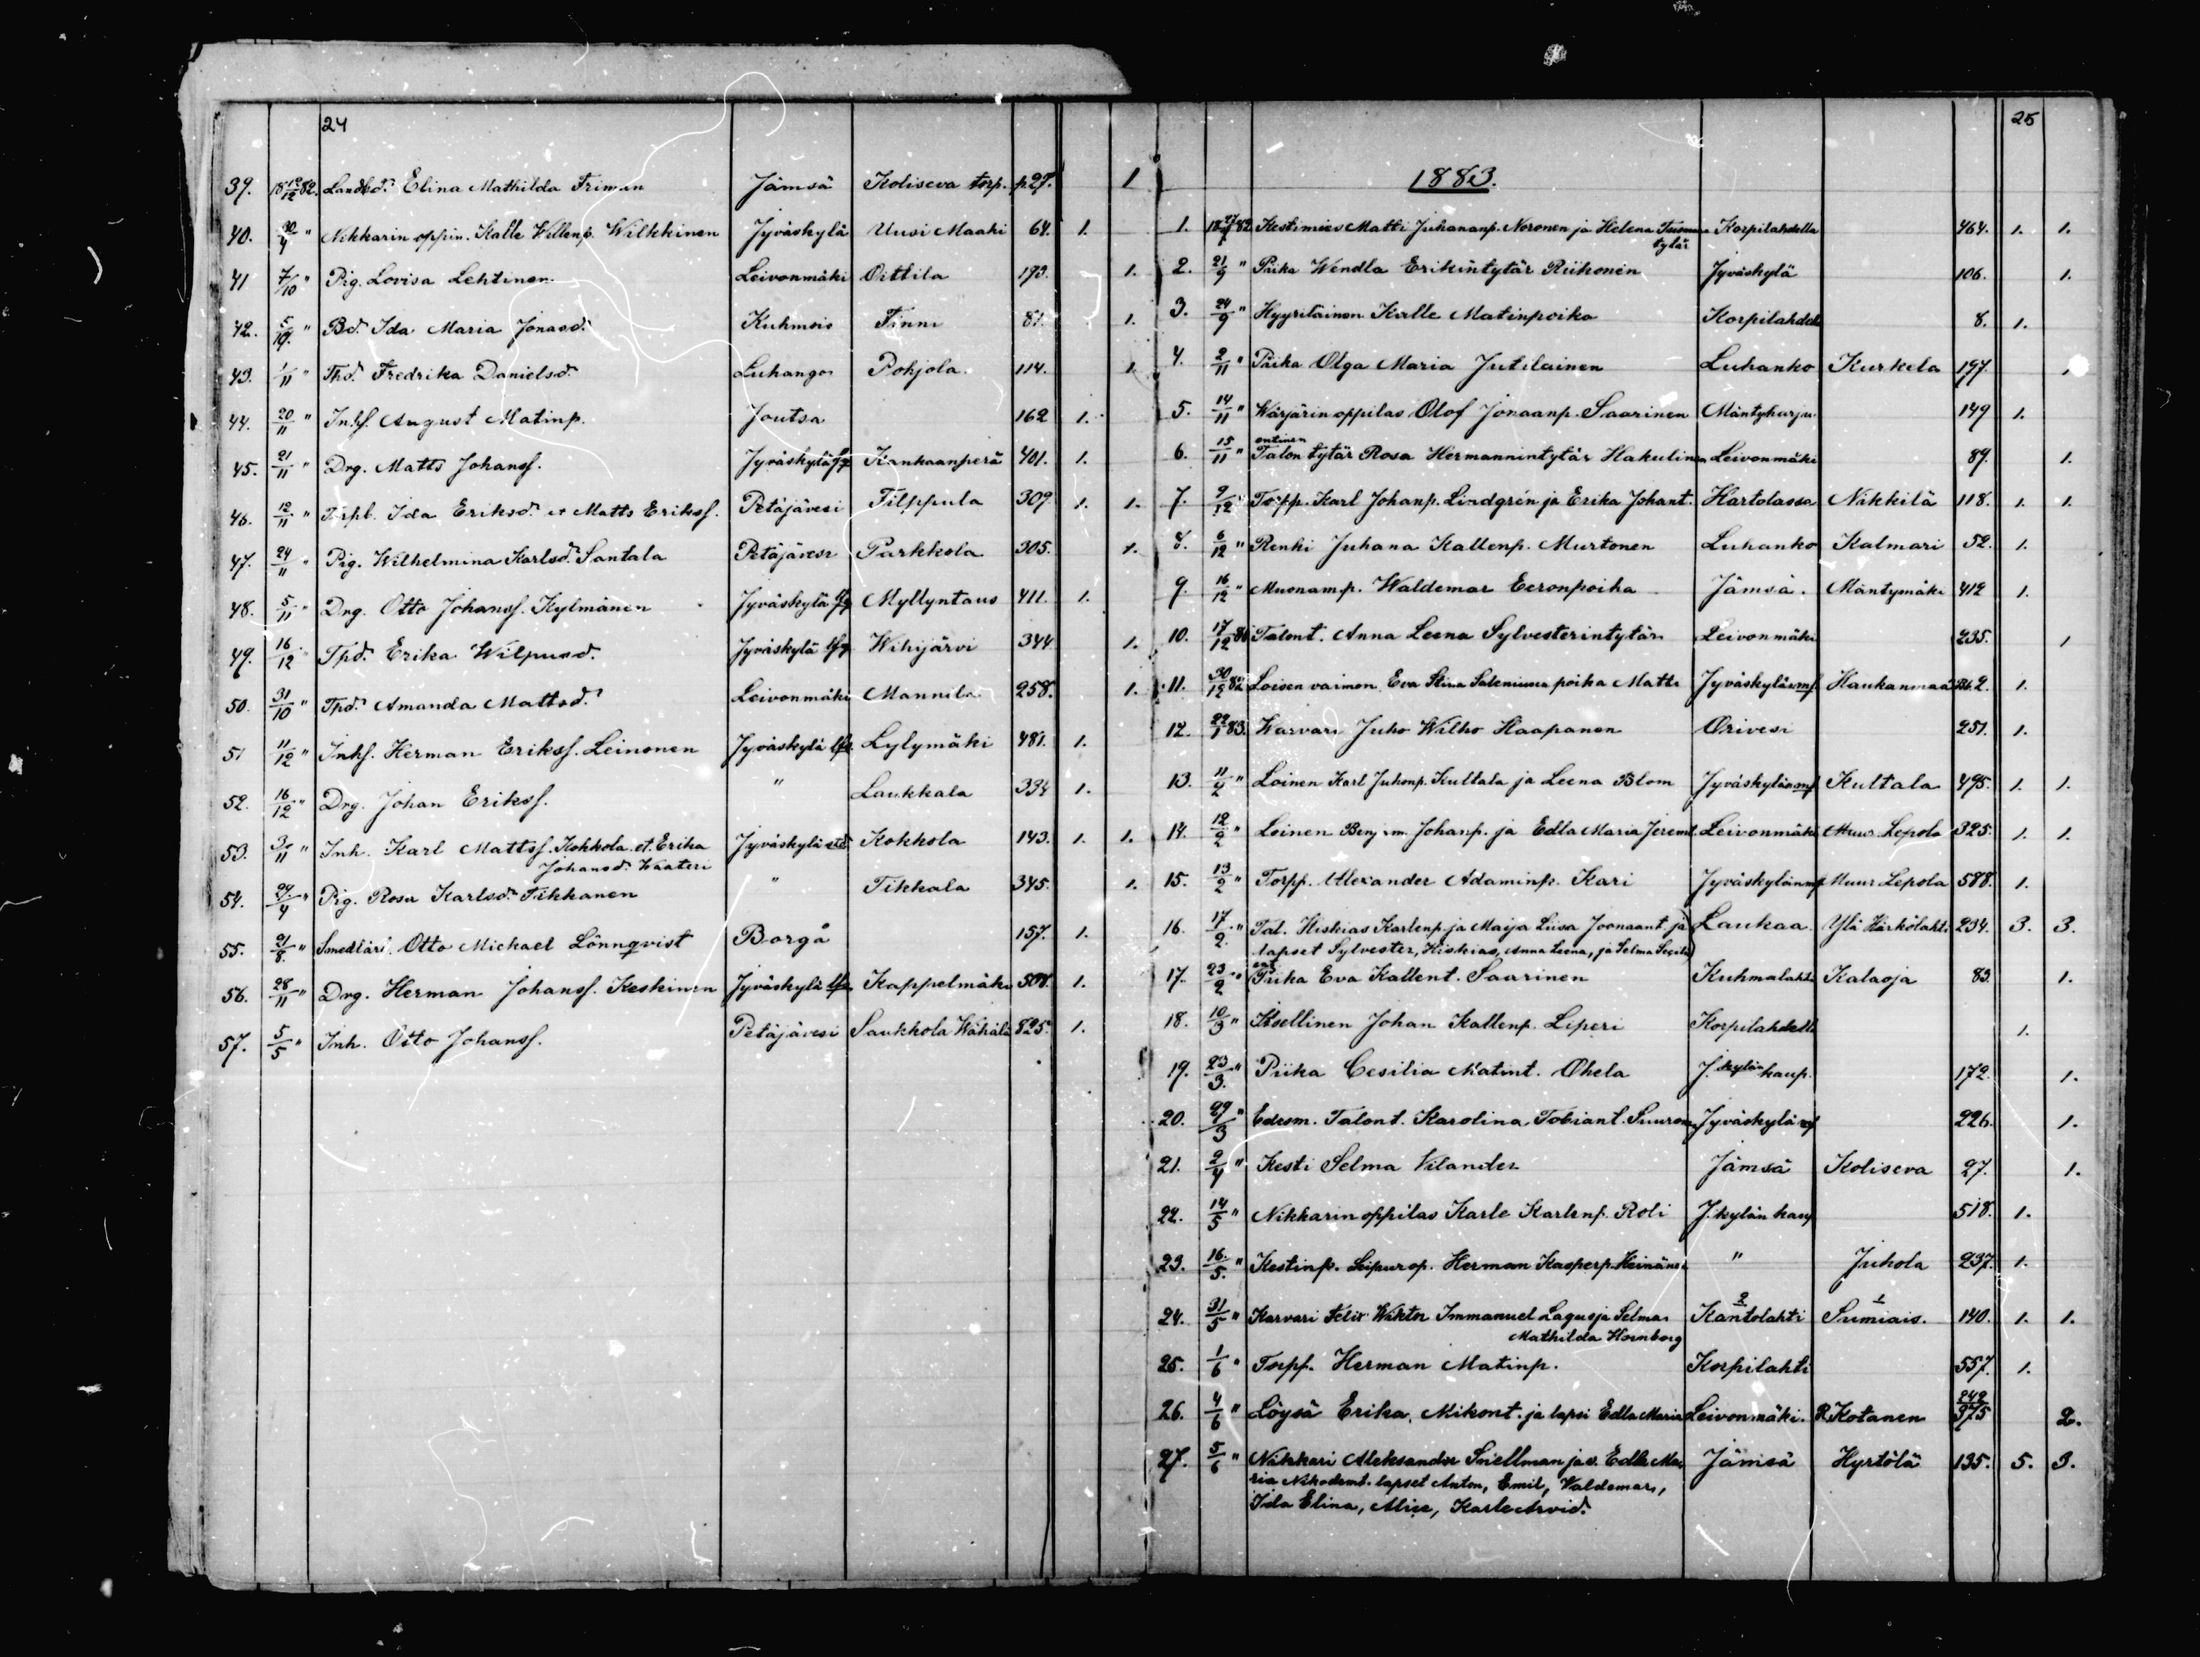 24
39. 18 12/12 82. Landbd. Elina Mathilda Friman Jämsä Koliseva torp. p27. 1
40. 30/4 " Nikkarin oppin. Kalle Willenp. Wilkkinen Jyväskylä Uusi Maaki 64. 1.
41 7/10 " Pig. Lovisa Lehtinen Leivonmäki Oittila 173. 1.
42. " Bd. Ida Maria Jonasd. Kuhmois Finni 81. 1.
43. 1/11 " Thd. Fredrika Danielsd. Luhango Pohjola. 114. 1.
44. 20/11 " Inhs. August Matinp. Joutsa 162 1.
45. 21/11 " Drg. Matts Johanss. Jyväskylä Kankaanperä 401. 1.
46. 12/11 " Torpb. Ida Eriksd. et Matts Erikss. Petäjävesi Tilppula 309 1. 1.
47. 24/11 " Pig. Wilhelmina Karlsd. Santala Petäjävesi Parkkola 305. 1.
48. 5/11 " Drg. Otto Johanss. Kylmänen Jyväskylä Myllyntaus 411. 1.
49. 16/12 " Thd. Erika Wilpusd. Jyväskylä Wihijärvi 344 1.
50. 31/10 " Thd. Amanda Mattsd. Leivonmäki Mannila 258. 1.
51 11/12 " Inhs. Herman Erikss. Leinonen Jyväskylä Lylymäki 481. 1.
52. 16/12 " Drg. Johan Erikss. " Laukkala 334 1.
53. 3/11 " Inh. Karl Mattss. Kokkola et. Erika Jyväskylä std Kokkola 143. 1. 1.
Johansd. Waateri
54. 24/4 " Pig. Rosa Karlsd. Tikkanen " Tikkala 345. 1.
55. 21/8 " Smedlärl. Otto Michael Lönnqvist Borgå 157. 1.
56. 28/11 " Drg. Herman Johanss. Keskinen Jyväskylä Kappelmäki 508. 1.
57. 5/5 " Inh. Otto Johanss. Petäjävesi Saukkola Wähälä 825. 1.
25
1883.
1. Kestimies Matti Juhananp. Noronen ja Helena Korpilahdella 464. 1. 1.
tytär
2. 21/9 " Piika Wendla Erikintytär Riikonen Jyväskylä 106. 1.
3. 24/9 " Hyyriläinen Kalle Matinpoika Korpilahdella 8. 1.
4. 2/11 " Piika Olga Maria Jutilainen Luhanko Kurkela 197
5. 14/11 " Wärjärin oppilas Olof Jonaanp. Saarinen Mäntyharju. 149 1.
entinen
6. 15/11 " Talon tytär Rosa Hermannintytär Hakulinen Leivonmäki 89. 1.
7. 9/12 Torpp. Karl Johanp. Lindgrén ja Erika Johant. Hartolassa Nikkilä 118. 1. 1.
8. 6/12 " Renki Juhana Kallenp. Murtonen Luhanko Kalmari 52. 1.
9. 16/12 " Muonamp. Waldemar Eeronpoika Jämsä. Mäntymäki 412 1.
10. 17/12 Talont. Anna Leena Sylvesterintytär Leivonmäki 235. 1
11. 30/12 82 Loisen vaimon Eva Stina Saleniusen poika Matti Jyväskylän Haukanmaa 1.
12. 22/1 83. Karvari Juho Wilho Haapanen Orivesi 251. 1.
13. 11/2 " Loinen Karl Juhonp. Kuttala ja Leena Blom Jyväskylän Kuttala 495. 1. 1.
14. 12/2 " Loinen Benjam. Johanp. ja Edla Maria Jeremt. Leivonmäki Muur. Lepola 325. 1. 1.
15. 13/2 " Torpp. Alexander Adaminp. Kari Jyväskylän Muur Lepola 588. 1.
16. 17/2 " Tal. Hiskias Karlenp. ja Maija Liisa Joonaant. ja Laukaa Ylä Härkölahti 234. 3. 3.
lapset Sylvester, Hiskias, Anna Leena, ja Selma Sesilia
17. 23/2 " Piika Eva Kallent. Saarinen Kuhmalahti Kalaoja 83. 1.
18. 10/3 " Itsellinen Johan Kallenp. Liperi Korpilahdella 1.
19. 23/3. " Piika Cesilia Matint. Ohela J.kylän kaup. 172. 1.
20. 29/3 " Edesm. Talont. Karolina Tobiant. Suuronen Jyväskylä 226. 1.
21. 2/4 " Kesti Selma Vilander Jämsä Koliseva 27. 1.
22. 14/5 " Nikkarin oppilas Karle Karlenp. Roli J.kylän kaup 518. 1.
23. 16./5. " Kestinp. Leipurop. Herman Kasperp. Heinänen " Juhola 237. 1.
24. 31/5 " Karvari Felix Wiktor Immanuel Lagus ja Selma Kantolahti Sumiais. 140. 1. 1.
Mathilda Hornborg
25. 1/6 " Torpp. Herman Matinp. Korpilahti 557. 1.
26. 4/6 " Löysä Erika Mikont. ja lapsi Edla Maria Leivonmäki. R Kotanen 242/375 2.
27. 5/6 " Nikkari Aleksander Snellman ja v. Edla Ma- Jämsä Hyrtölä 135. 5. 3.
ria Nikodemt. lapset Anton, Emil, Valdemar,
Ida Elina, Alice, Karle Arvid.